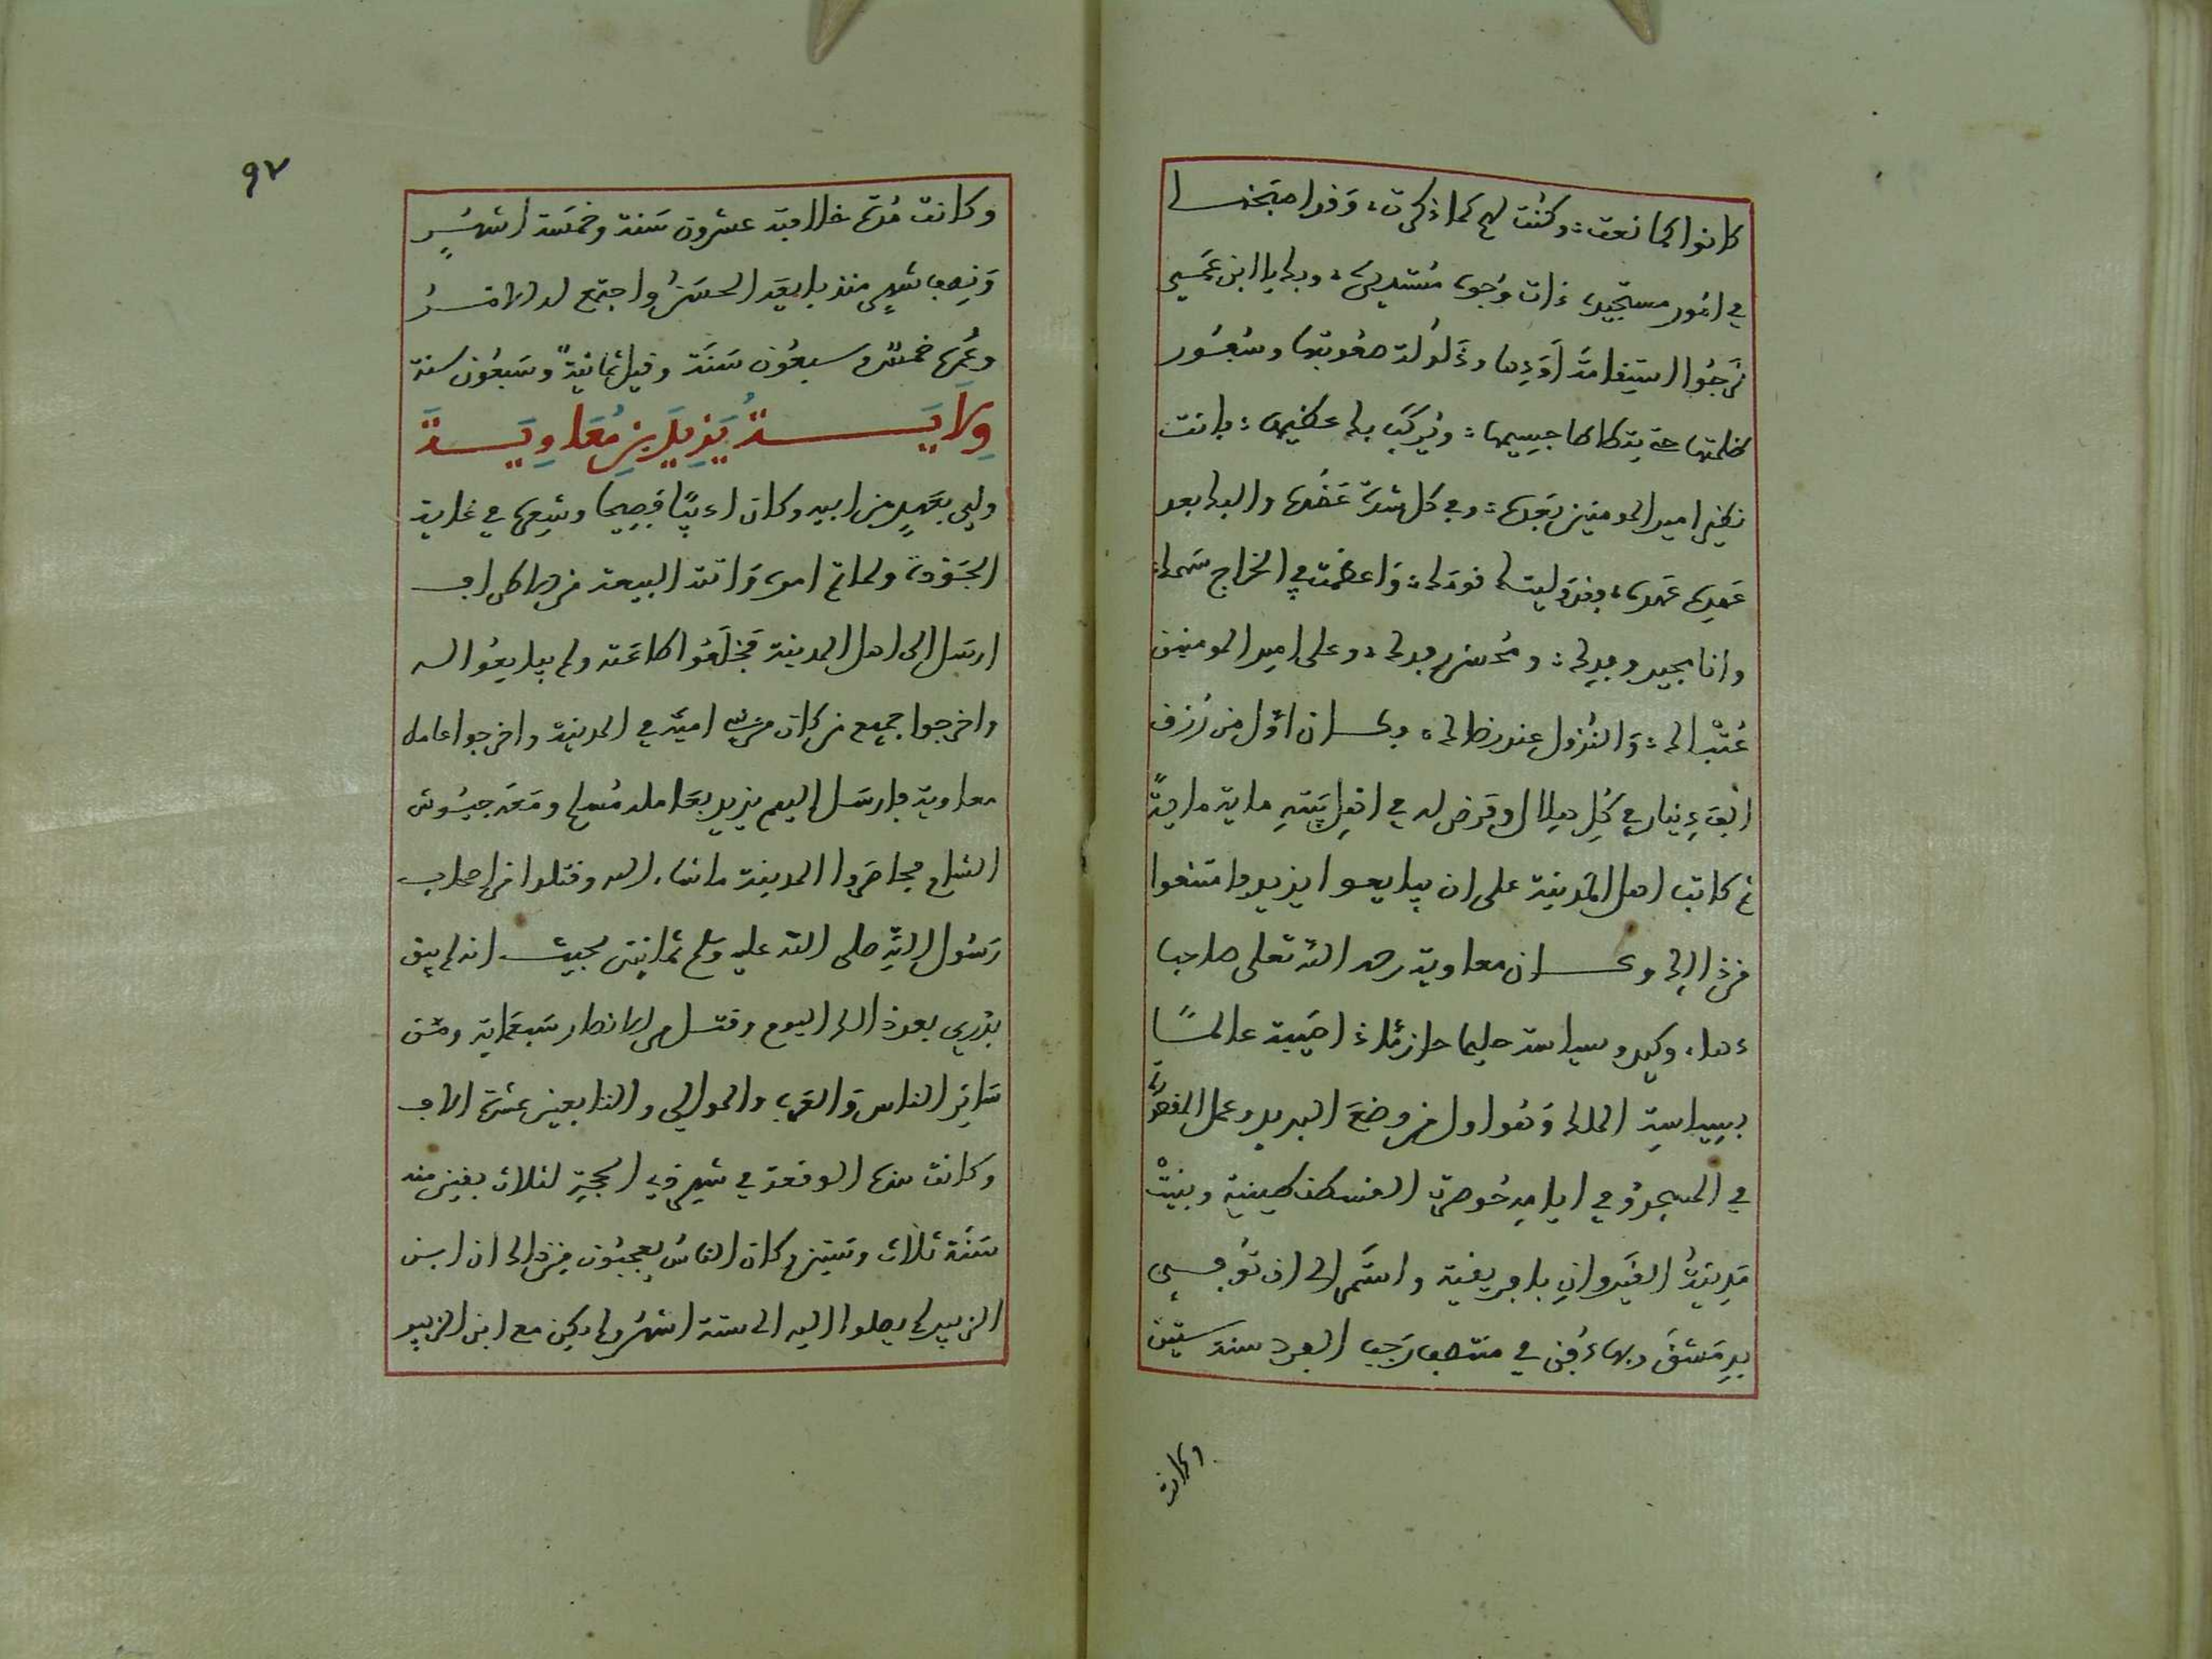 كانوا كما نعت وكنت لهم كما ذكرت وقد اصبحنا
في امور مستجيرة ذات وجوه مستديرة وبك يا ابن عمي
نرجوا استقامة اودها وذلولة صعوبتها وسفور
ظلمتها حتى يتطاطا جسيمها ويركب بك عظيمها فانت
نظير امير المومنين بعده وفي كل شدة عضده واليك بعد
عهده عهده وقد وليتك قومك واعظمت في الخراج سهمك
وانا مجيز وفدك ومحسن رفدك وعلى امير المومنين
عتبك والنزول عند رضاك وكان اول من رزق
الف دينار في كل هلال وفرض له في اهل بيته ماية ماية
ثم كاتب اهل المدينة على ان يبايعوا يزيد فامتنعوا
من ذالك وكان معاوية رحمه الله تعلى صاحب
دهاء وكيد وسياسة حليما حازما ذا هيبة عالما
بسياسة الملك وهو اول من وضع البريد وعمل المقصورة
في المسجد وفي ايامه حوصرت القسطنطينية وبنيت
مدينة القيروان بافريقية واستمر الى ان توفي
بدمشق وبها دفن في منتصف رجب الفرد سنة ستين
وكانت
٩٧
وكانت مدة خلافته عشرون سنة وخمسة اشهر
ونصف شهر منذ بايعه الحسن واجتمع له الامر
وعمره خمس وسبعون سنة وقيل ثمانية وسبعون سنة
ولاية يزيد بن معاوية
ولي بعهد من ابيه وكان اديبا فصيحا وشعره في غاية
الجودة ولما تم امره واتته البيعة من كل افق
ارسل الى اهل المدينة فخلعوا طاعته ولم يبايعوا له
واخرجوا جميع من كان من بني امية في المدينة واخرجوا عامل
معاوية فارسل اليهم يزيد بعامله مسلم ومعه جيوش
الشام فحاصروا المدينة ما شاء الله وقتلوا من اصحاب
رسول الله صلى الله عليه وسلم ثمانين بحيث انه لم يبق
بدري بعد ذالك اليوم وقتل من الانصار سبعماية ومن
ساير الناس والعرب والموالي والتابعين عشرة الاف
وكانت هذه الوقعة في شهر ذي الحجة لثلاث بقين منه
سنة ثلاث وستين وكان الناس يعجبون من ذالك ان ابن
الزبير لم يصلوا اليه الى ستة اشهر ولم يكن مع ابن الزبير